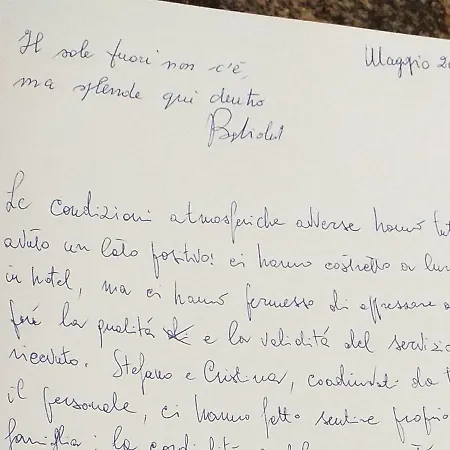 Il sole fuori non c'è, Maggio 20
ma splende qui dentro
Le condizioni atmosferiche avverse hanno tut
avuto un lato positivo: ci hanno costretto a lun
in hotel, ma ci hanno permesso di apprezzare a
pené la qualitá e la validitá del servizio
ricevuto. Stefano e Cristina, coadiuvati da t
il personale, ci hanno fatto sentire proprio
famiglia: la